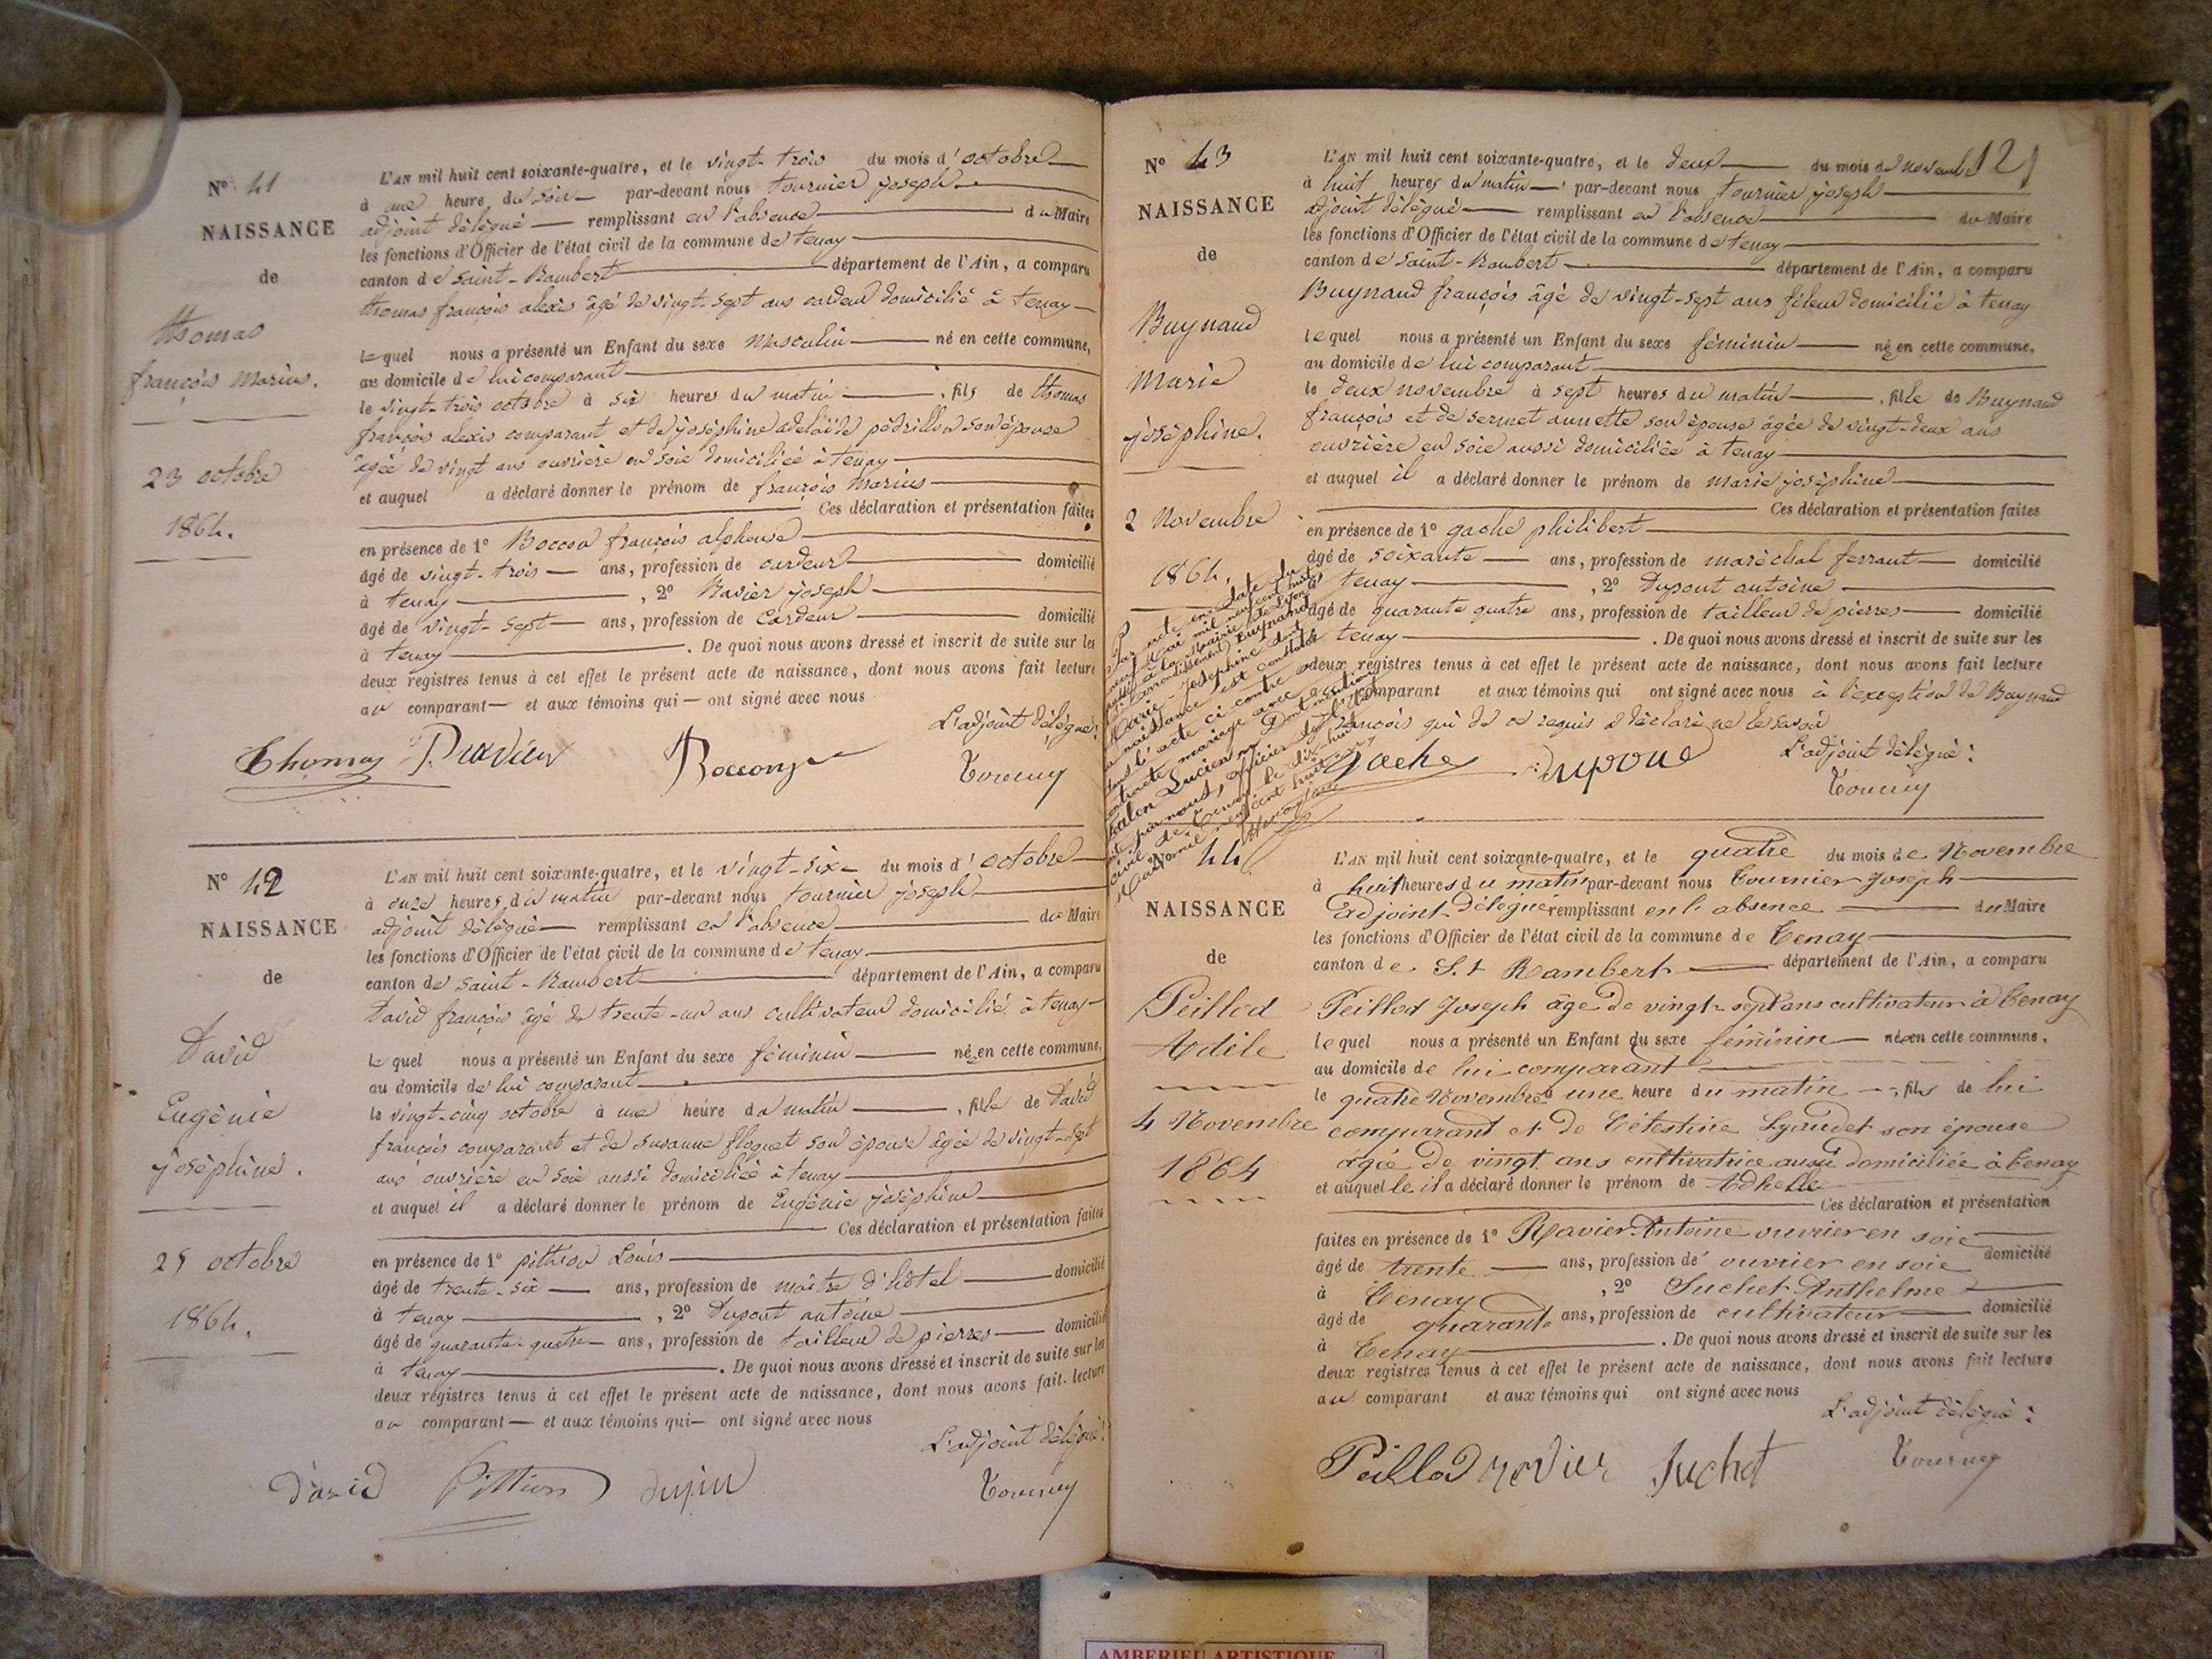 N° 41
NAISSANCE
de
thomas
françois Marius.
23 octobre
1864.
L'AN mil huit cent soixante-quatre, et le vingt-trois du mois d'octobre
à une heure du soir par-devant nous tournier joseph
adjoint délégué remplissant en l'absence du Maire
les fonctions d'Officier de l'état civil de la commune de tenay
canton de Saint-Rambert département de l'Ain, a comparu
thomas françois alexis âgé de vingt-sept ans cardeur domicilié à tenay
lequel nous a présenté un Enfant du sexe Masculin né en cette commune,
au domicile de lui comparant
le vingt-trois octobre à six heures du matin, fils de thomas
françois alexis comparant et de joséphine adélaïde pédrillon son épouse
âgée de vingt ans ouvrière en soie domiciliée à tenay
et auquel a déclaré donner le prénom de françois Marius
Ces déclaration et présentation faites
en présence de 1° Boccon françois alphonse
âgé de vingt-trois ans, profession de cardeur domicilié
à tenay, 2° Ravier joseph
âgé de vingt-sept ans, profession de Cardeur domicilié
à tenay. De quoi nous avons dressé et inscrit de suite sur les
deux registres tenus à cet effet le présent acte de naissance, dont nous avons fait lecture
au comparant et aux témoins qui ont signé avec nous
L'adjoint délégué:
Thomas Ravier Boccon
N° 42
NAISSANCE
de
David
Eugénie
joséphine.
25 octobre
1864.
L'AN mil huit cent soixante-quatre, et le vingt-six du mois d'octobre
à onze heures du matin par-devant nous tournier joseph
adjoint délégué remplissant en l'absence du Maire
les fonctions d'Officier de l'état civil de la commune de tenay
canton de Saint-Rambert département de l'Ain, a comparu
David françois âgé de trente-un ans cultivateur domicilié à tenay
lequel nous a présenté un Enfant du sexe féminin née en cette commune,
au domicile de lui comparant
le vingt-cinq octobre à une heure du matin, fille de David
françois comparant et de Susanne floquet son épouse âgée de vingt-sept
ans ouvrière en soie aussi domiciliée à tenay
et auquel il a déclaré donner le prénom de Eugénie joséphine
Ces déclaration et présentation faites
en présence de 1° pithion Louis
âgé de trente-six ans, profession de maître d'hôtel domicilié
à tenay, 2° Dupont antoine
âgé de quarante-quatre ans, profession de tailleur de pierres domicilié
à tenay. De quoi nous avons dressé et inscrit de suite sur les
deux registres tenus à cet effet le présent acte de naissance, dont nous avons fait lecture
au comparant et aux témoins qui ont signé avec nous
L'adjoint délégué:
David Pithion
121
N° 43
NAISSANCE
de
Buynand
Marie
joséphine.
2 Novembre
1864.
L'AN mil huit cent soixante-quatre, et le deux du mois de novembre
à huit heures du matin par-devant nous tournier joseph
adjoint délégué remplissant en l'absence du Maire
les fonctions d'Officier de l'état civil de la commune de tenay
canton de Saint-Rambert département de l'Ain, a comparu
Buynand françois âgé de vingt-sept ans fileur domicilié à tenay
lequel nous a présenté un Enfant du sexe féminin née en cette commune,
au domicile de lui comparant
le deux novembre à sept heures du matin, fille de Buynand
françois et de sermet annette son épouse âgée de vingt-deux ans
ouvrière en soie aussi domiciliée à tenay
et auquel il a déclaré donner le prénom de marie joséphine
Ces déclaration et présentation faites
en présence de 1° gache philibert
âgé de soixante ans, profession de maréchal ferrant domicilié
à tenay, 2° Dupont antoine
âgé de quarante quatre ans, profession de tailleur de pierres domicilié
à tenay. De quoi nous avons dressé et inscrit de suite sur les
deux registres tenus à cet effet le présent acte de naissance, dont nous avons fait lecture
au comparant et aux témoins qui ont signé avec nous à l'exception de Buynand
françois qui de ce requis a déclaré ne le savoir
L'adjoint délégué:
Gache Dupont
Par acte en date du
mai mil neuf cent huit
à la Mairie de Lyon
arrondissement, Buynand
Marie-Joséphine dont
la naissance est constatée
dans l'acte ci contre a
contracté mariage avec
Lucien. Dont mention
par nous, officier de l'état
civil de Tenay le dix-huit
Mai mil neuf cent huit
N° 44
NAISSANCE
de
Peillod
Adèle
4 Novembre
1864
L'AN mil huit cent soixante-quatre, et le quatre du mois de Novembre
à huit heures du matin par-devant nous Tournier Joseph
adjoint Délégué remplissant en l'absence du Maire
les fonctions d'Officier de l'état civil de la commune de Tenay
canton de St Rambert département de l'Ain, a comparu
Peillod Joseph âgé de vingt-sept ans cultivateur à Tenay
lequel nous a présenté un Enfant du sexe féminin née en cette commune,
au domicile de lui comparant
le quatre Novembre à une heure du matin, fils de lui
comparant et de Célestine Lyaudet son épouse
âgée de vingt ans cultivatrice aussi domiciliée à Tenay
et auquel le il a déclaré donner le prénom de
Ces déclaration et présentation
faites en présence de 1° Ravier Antoine ouvrier en soie
âgé de trente ans, profession de ouvrier en soie domicilié
à Tenay, 2° Suchet Anthelme
âgé de quarante ans, profession de cultivateur domicilié
à Tenay. De quoi nous avons dressé et inscrit de suite sur les
deux registres tenus à cet effet le présent acte de naissance, dont nous avons fait lecture
au comparant et aux témoins qui ont signé avec nous
L'adjoint délégué:
Peillod ravier Suchet
AMBERIEU ARTISTIQUE